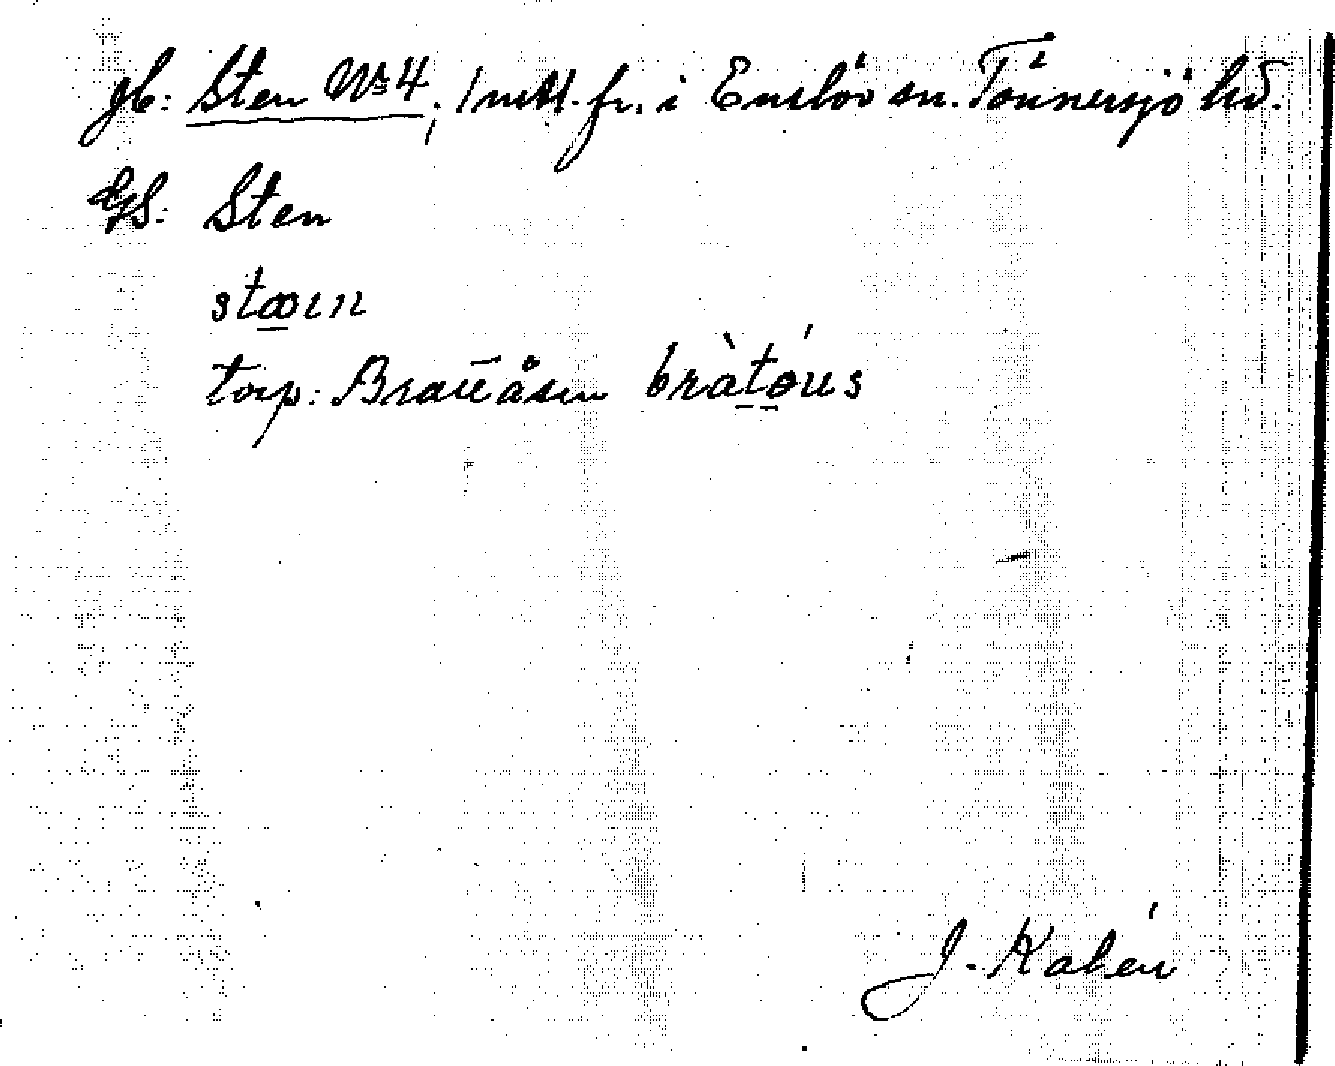 jb: Sten No 4, 1 mtl. fr. i Enslöv sn. Tönnersjö hd.
GS: Sten
stæin
torp: Brattåsen bràtóus
J. Kalén